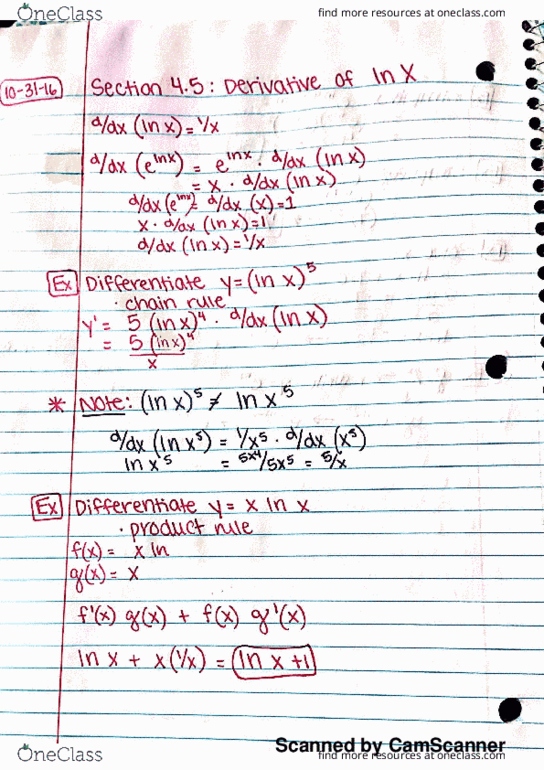 OneClass
find more resources at oneclass.com
10-31-16
Section 4.5: Derivative of ln X
d/dx (ln x) = 1/x
d/dx (e^lnx) = e^lnx · d/dx (ln x)
= x · d/dx (ln x)
d/dx (e^lnx) = d/dx (x) = 1
x · d/dx (ln x) = 1
d/dx (ln x) = 1/x
Ex Differentiate y = (ln x)^5
· chain rule
y' = 5 (ln x)^4 · d/dx (ln x)
= 5 (ln x)^4
x
* Note: (ln x)^5 ≠ ln x^5
d/dx (ln x^5) = 1/x^5 · d/dx (x^5)
ln x^5 = 5x^4/5x^5 = 5/x
Ex Differentiate y = x ln x
· product rule
f(x) = x ln
g(x) = x
f'(x) g(x) + f(x) g'(x)
ln x + x(1/x) = ln x + 1
Scanned by CamScanner
OneClass
find more resources at oneclass.com